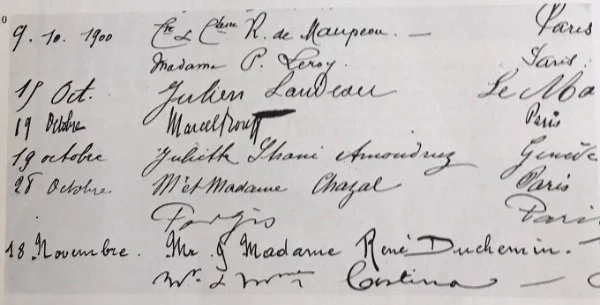 9. 10. 1900 Cte & Ctesse R. de Maupeou. — Paris
Madame P. Leroy. Paris.
15 Oct. Julien Landeau Le Ma
19 Octobre Marcel Paris
19 octobre Juliette Amoudruz Genève
28 Octobre Mr et Madame Chazal Paris
Paris
18. Novembre. Mr & Madame René Duchemin.
Mr. & Mme